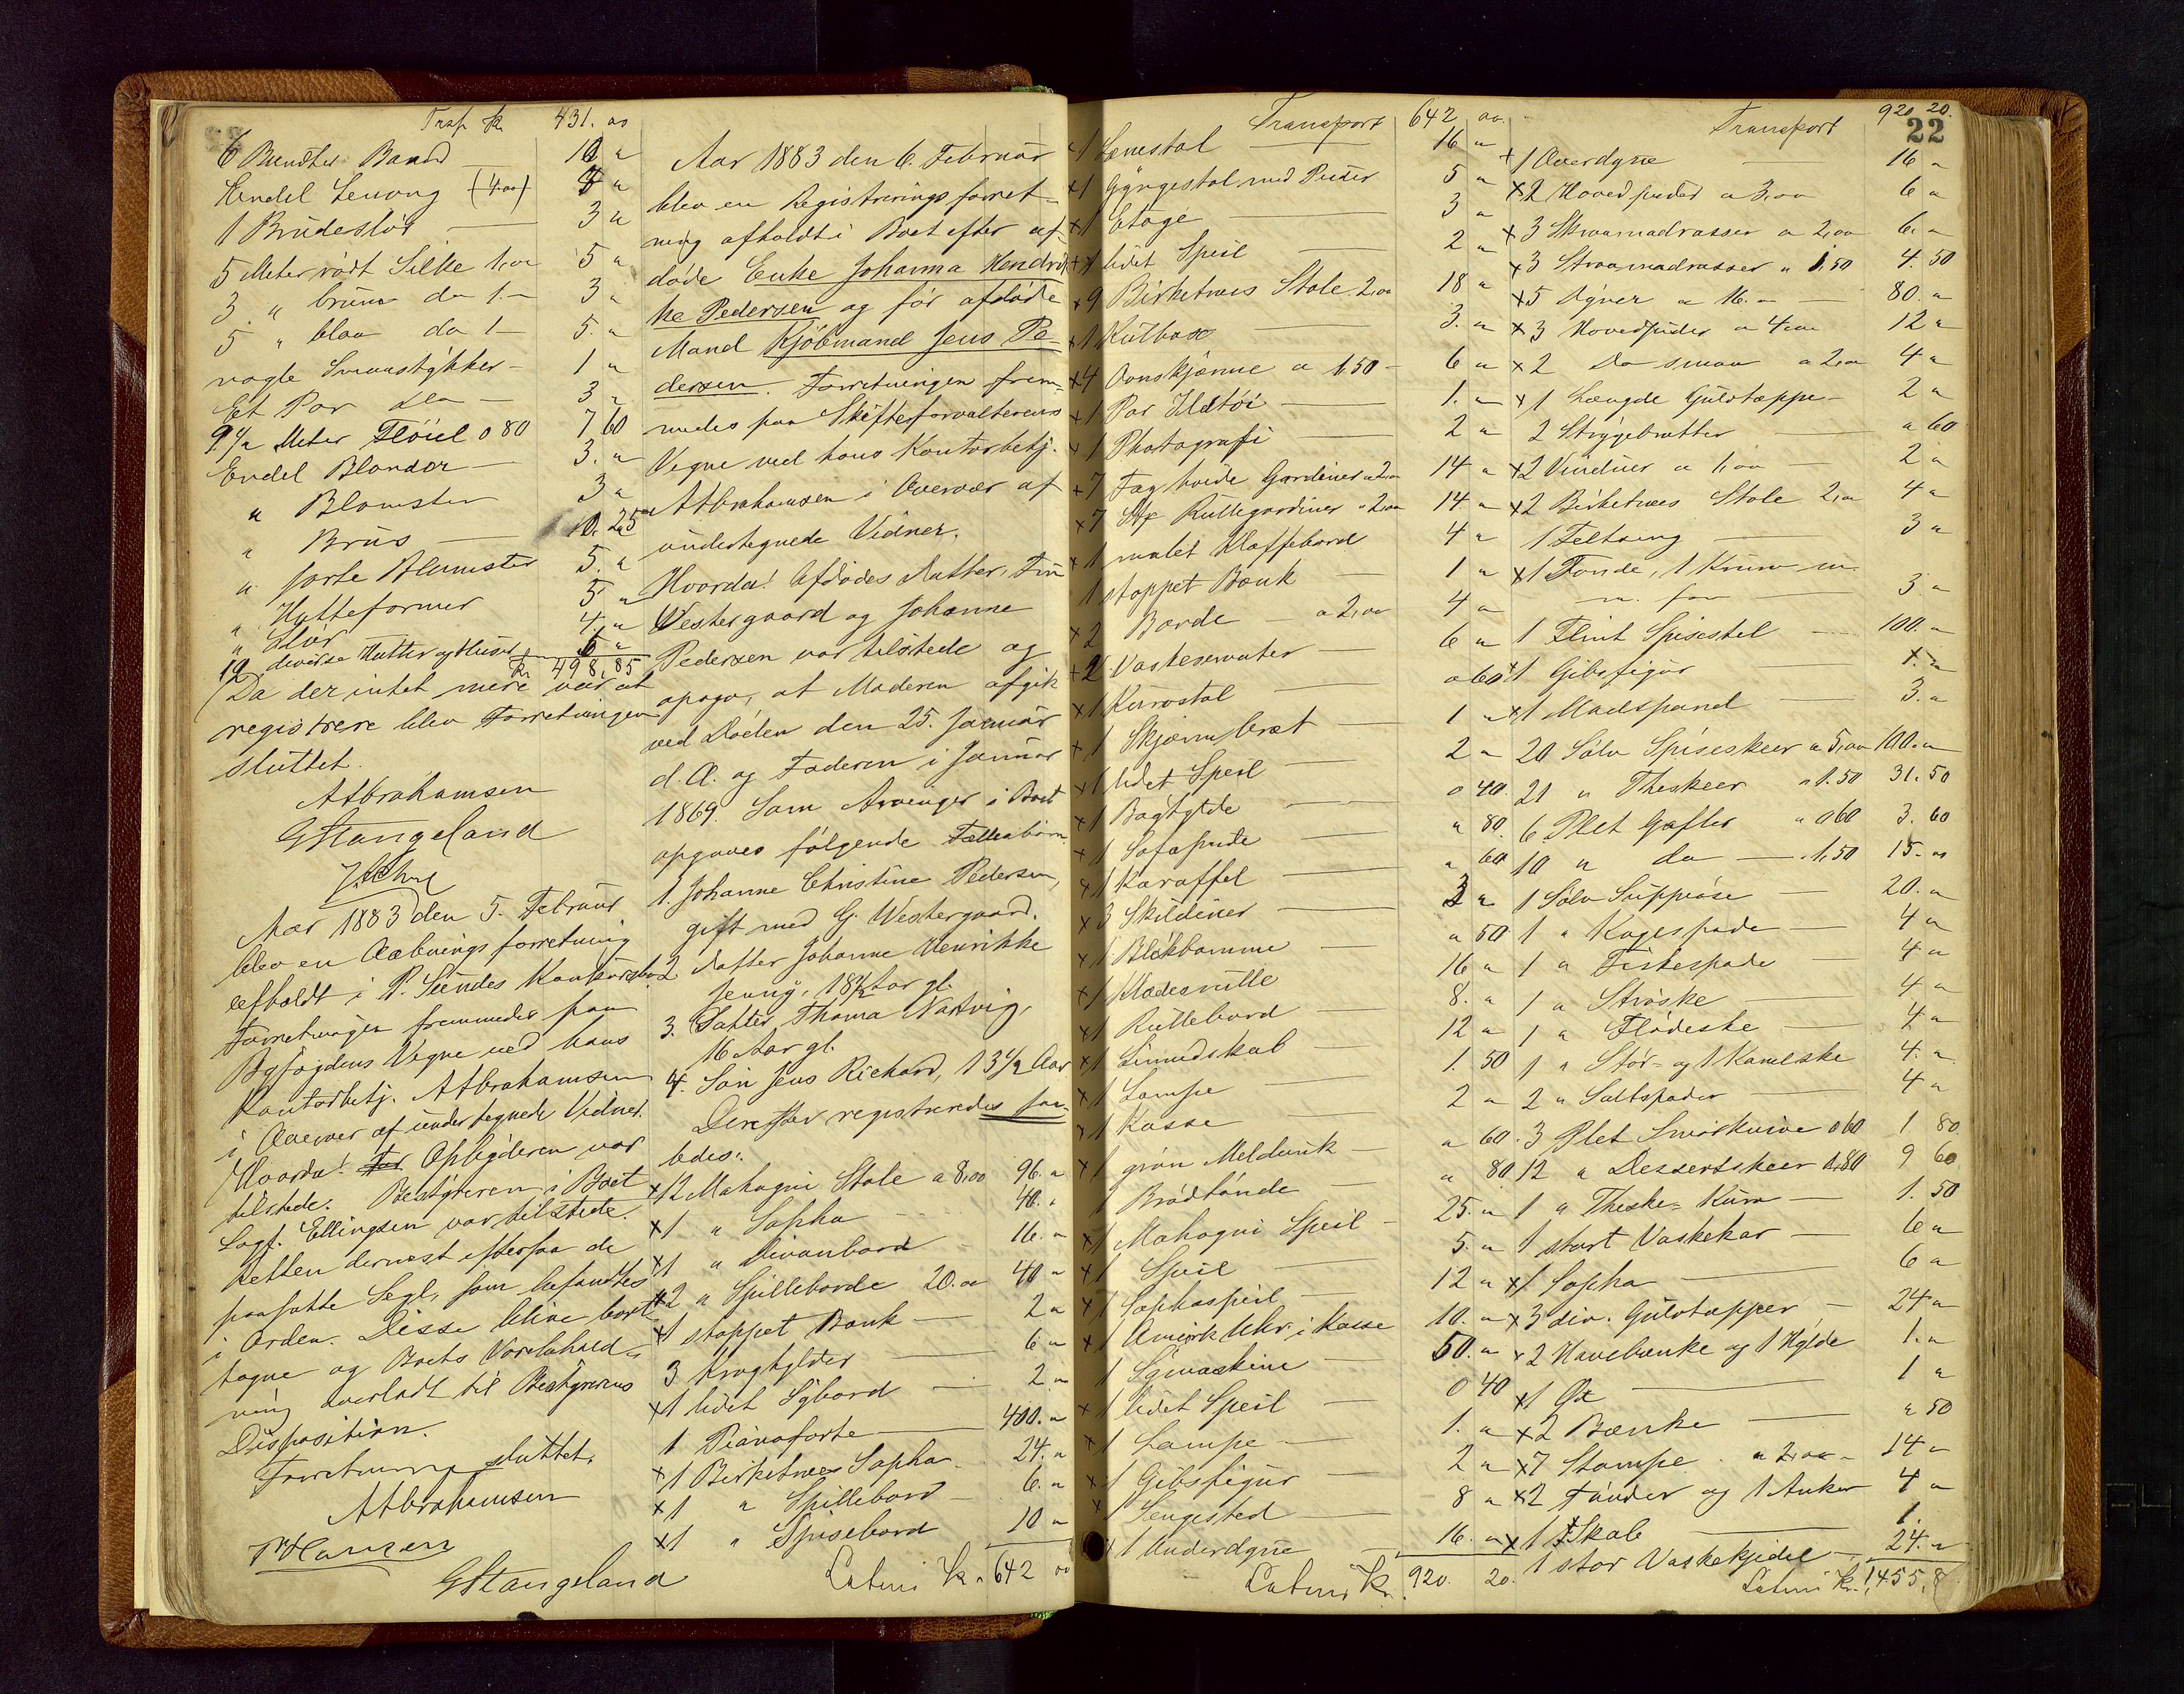 Trsp. Kr. 431. 00
6 Bundter Baand — 12 "
Endel Lenong (4.00) 4 "
1 Brudeslør — 3 "
5 Meter rødt Silke 1,00 5 "
3 " brunt do 1.— 3 "
5 " blaa do 1— 5. "
nogle Smaastykker — 1 "
Et Par do — 3 "
9 1/2 Meter Fløiel 0 80 7 60
Endel Blonder — 3. "
" Blomster 3 "
" Brus — 10. 25
" sorte Blomster 5. "
" Hatteformer 5 "
" Slør 4. "
12 diverse Hatter og Huser 6 "
Kr. 498,85
Da der intet mere var at
registrere blev Forretningen
sluttet.
A Abrahamsen
G Stangeland
Aar 1883 den 5. Februar
blev en Aabningsforretning
afholdt i P. Sundes Konkursbo.
Forretningen fremmedes paa
Byfogdens Vegne ved hans
Kontorbetj. Abrahamsen
i Overvær af undertegnede Vidner.
Hvorda! For Opbyderen var
tilstede. Bestyreren i Boet
Sagf. Ellingsen var tilstede.
Retten dernæst eftersaa de
paasatte Segl, som befandtes
i Orden. Disse bleve bort-
tagne og Boets Varebehold-
ning overladt til Bestyrerens
Disposition.
Forretningen sluttet.
A Abrahamsen
P Hansen
G Stangeland
Aar 1883 den 6. Februar
blev en Registreringsforret-
ning afholdt i Boet efter af-
døde Enke Johanna Hendrik-
ke Pedersen og før afdøde
Mand Kjøbmand Jens Pe-
dersen. Forretningen frem-
medes paa Skifteforvalterens
Vegne ved hans Kontorbetj.
Abrahamsen i Overvær af
undertegnede Vidner.
Hvorda! Afdødes Datter, Fru
Westergaard og Johanne
Pedersen var tilstede og
opgav, at Moderen afgik
ved Døden den 25. Januar
d. A. og Faderen i Januar
1869. Som Arvinger i Boet
opgaves følgende Fællesbørn
1. Johanne Christine Pedersen,
gift med G. Westergaard.
2. Datter Johanne Henrikke
Jenny, 18 1/2 Aar gl.
3. Datter Thoma Natvig,
16 Aar gl.
4. Søn Jens Richard, 13 1/2 Aar
Derefter registreredes saa-
ledes:
x 12 Mahogni Stole a 8,00 96. "
x 1 " Sopha 40. "
x 1 " Divanbord 16. "
x 2 " Spilleborde 20. 00 40 "
x 1 stoppet Bænk — 2 "
3 Kroghylder — 6 "
x 1 lidet Sybord — 2. "
1 Pianoforte — 400. "
x 1 Birketræes Sopha — 24. "
x 1 " Spillebord — 6. "
x 1 " Spisebord 10 "
Latus Kr. 642 00
Transport 642 00
x 1 Lænestol 16 "
x 1 Gyngestol med Puder 5 "
x 1 Etage 3 "
x 1 lidet Speil 2 "
x 9 Birketræes Stole 2,00 18 "
x 1 Kulbox 3. "
x 4 Ovnskjærme a 1.50 — 6 "
x 1 Par Ildtøi 1. "
x 1 Photografi 2 "
x 7 Fag hvide Gardiner a 2,00 14 "
x 7 Stk Rullegardiner a 2,00 14 "
x 1 malet Klaffebord 4 "
1 stoppet Bænk — 1 "
x 2 Borde — a 2,00 4 "
x 2 Vaskeservanter 6 "
x 1 Kurvstol 0 60
x 1 Skjærmbræt 1 "
x 1 lidet Speil 2 "
x 1 Boghylde 0 40
x 1 Sofapude " 80
x 1 Karaffel " 60
x 3 Skilderier 3 "
x 1 Blikbomme " 50
x 1 Klædesrulle 16 "
x 1 Rullebord 8. "
x 1 Linnedskab 12 "
x 1 Lampe 1. 50
x 1 Kasse 2 "
x 1 grøn Meldunk " 60
1 Brødtønde " 80
x 1 Mahogni Speil 25. "
x 1 Speil 5. "
x 1 Sophaspeil 12 "
x 1 Amerik Uhr i Kasse 10. "
1 Symaskine 50. "
x 1 lidet Speil 0 40
x 1 Lampe 1. "
x 1 Gibsfigur 2 "
x 1 Sengested 8 "
x 1 Underdyne 16. "
Latus Kr. 920. 20.
22
Transport 920. 20.
x 1 Overdyne 16 "
x 2 Hovedpuder a 3,00 6 "
x 3 Straamadrasser a 2,00 6. "
x 3 Straamadrasser a 1,50 4. 50
x 5 Dyner a 16. " 80. "
x 3 Hovedpuder a 4,00 12 "
x 2 Do smaa a 2,00 4 "
x 1 Længde Gulvtæppe — 2 "
2 Strygebrætter " 60
x 2 Vinduer a 1,00 2 "
x 2 Birketræes Stole 2,00 4 "
1 Feltseng 3 "
x 1 Tønde, 1 Kurv m.
m. for 3. "
1 Flint Spisestel 100. "
x 1 Gibsfigur 1. "
x 1 Madspand 3. "
20 Sølv Spiseskeer a 5,00 100. "
21 " Theskeer " 1.50 31. 50
6 Plet Gafler " 0 60 3. 60
10 " do — 1,50 15. 00
1 Sølv Suppeøse 20. "
1 " Kagespade 4 "
1 " Fiskespade 4 "
1 " Strøske 4 "
1 " Flødeske 4 "
1 " Stør- og 1 Kanelske 4. "
2 " Saltspader 4 "
3 Plet Smørknive 0 60 1 80
12 " Dessertskeer 0,80 9 60
1 " Theske-Kurv — 1. 50
1 stort Vaskekar 6 "
x 1 Sopha 6 "
x 3 div. Gulvtæpper 24 "
x 2 Havebænke og 1 Hylde 1. "
x 1 Øx 1 "
x 2 Bænke " 50
x 7 Stampe a 2,00 — 14 "
x 2 Tønder og 1 Anker 4 "
x 1 Skab 1.
1 stor Vaskekjedel — 24. "
Latus Kr. 1455,8